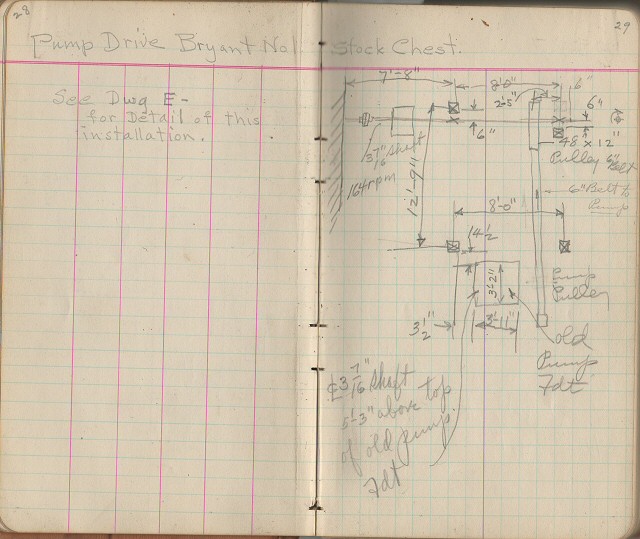 28
Pump Drive Bryant No 1 Stock Chest.
See Dwg E-
for Detail of this
installation.
29
7'-8"
8'-0"
2'-5"
6"
6"
6"
48" x 12"
Pulley 6" Belt
3 7/16 Shaft
164 rpm
12'-9"
6" Belt to
Pump
8'-0"
4 1/2
3'-2"
Pump
Pulley
3 1/2"
3'-11"
old
Pump
Fdt
℄ 3 7/16" Shaft
5'-3" above top
of old pump
Fdt